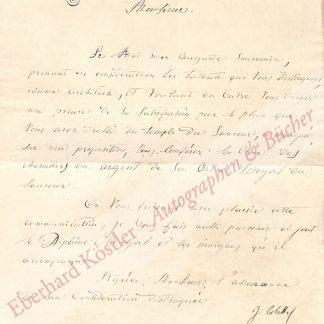 Monsieur.
Le Roi mon auguste Souverain,
prenant en considération les talents qui Vous distinguent
comme architecte, et voulant en outre Vous donner
une preuve de Sa Satisfaction pour le plan que
Vous avez dressé du temple du Sauveur,
sur ma proposition, Vous conférer la Croix des
chevaliers en argent de Son Ordre Royal du
Sauveur.
En Vous faisant avec plaisir cette
communication, je Vous fais aussi parvenir ci joint
le Diplôme Royal et les insignes qui
accompagnent
Agréez, Monsieur, l'assurance
de ma Considération distinguée
Eberhard Köstler - Autographen & Bücher